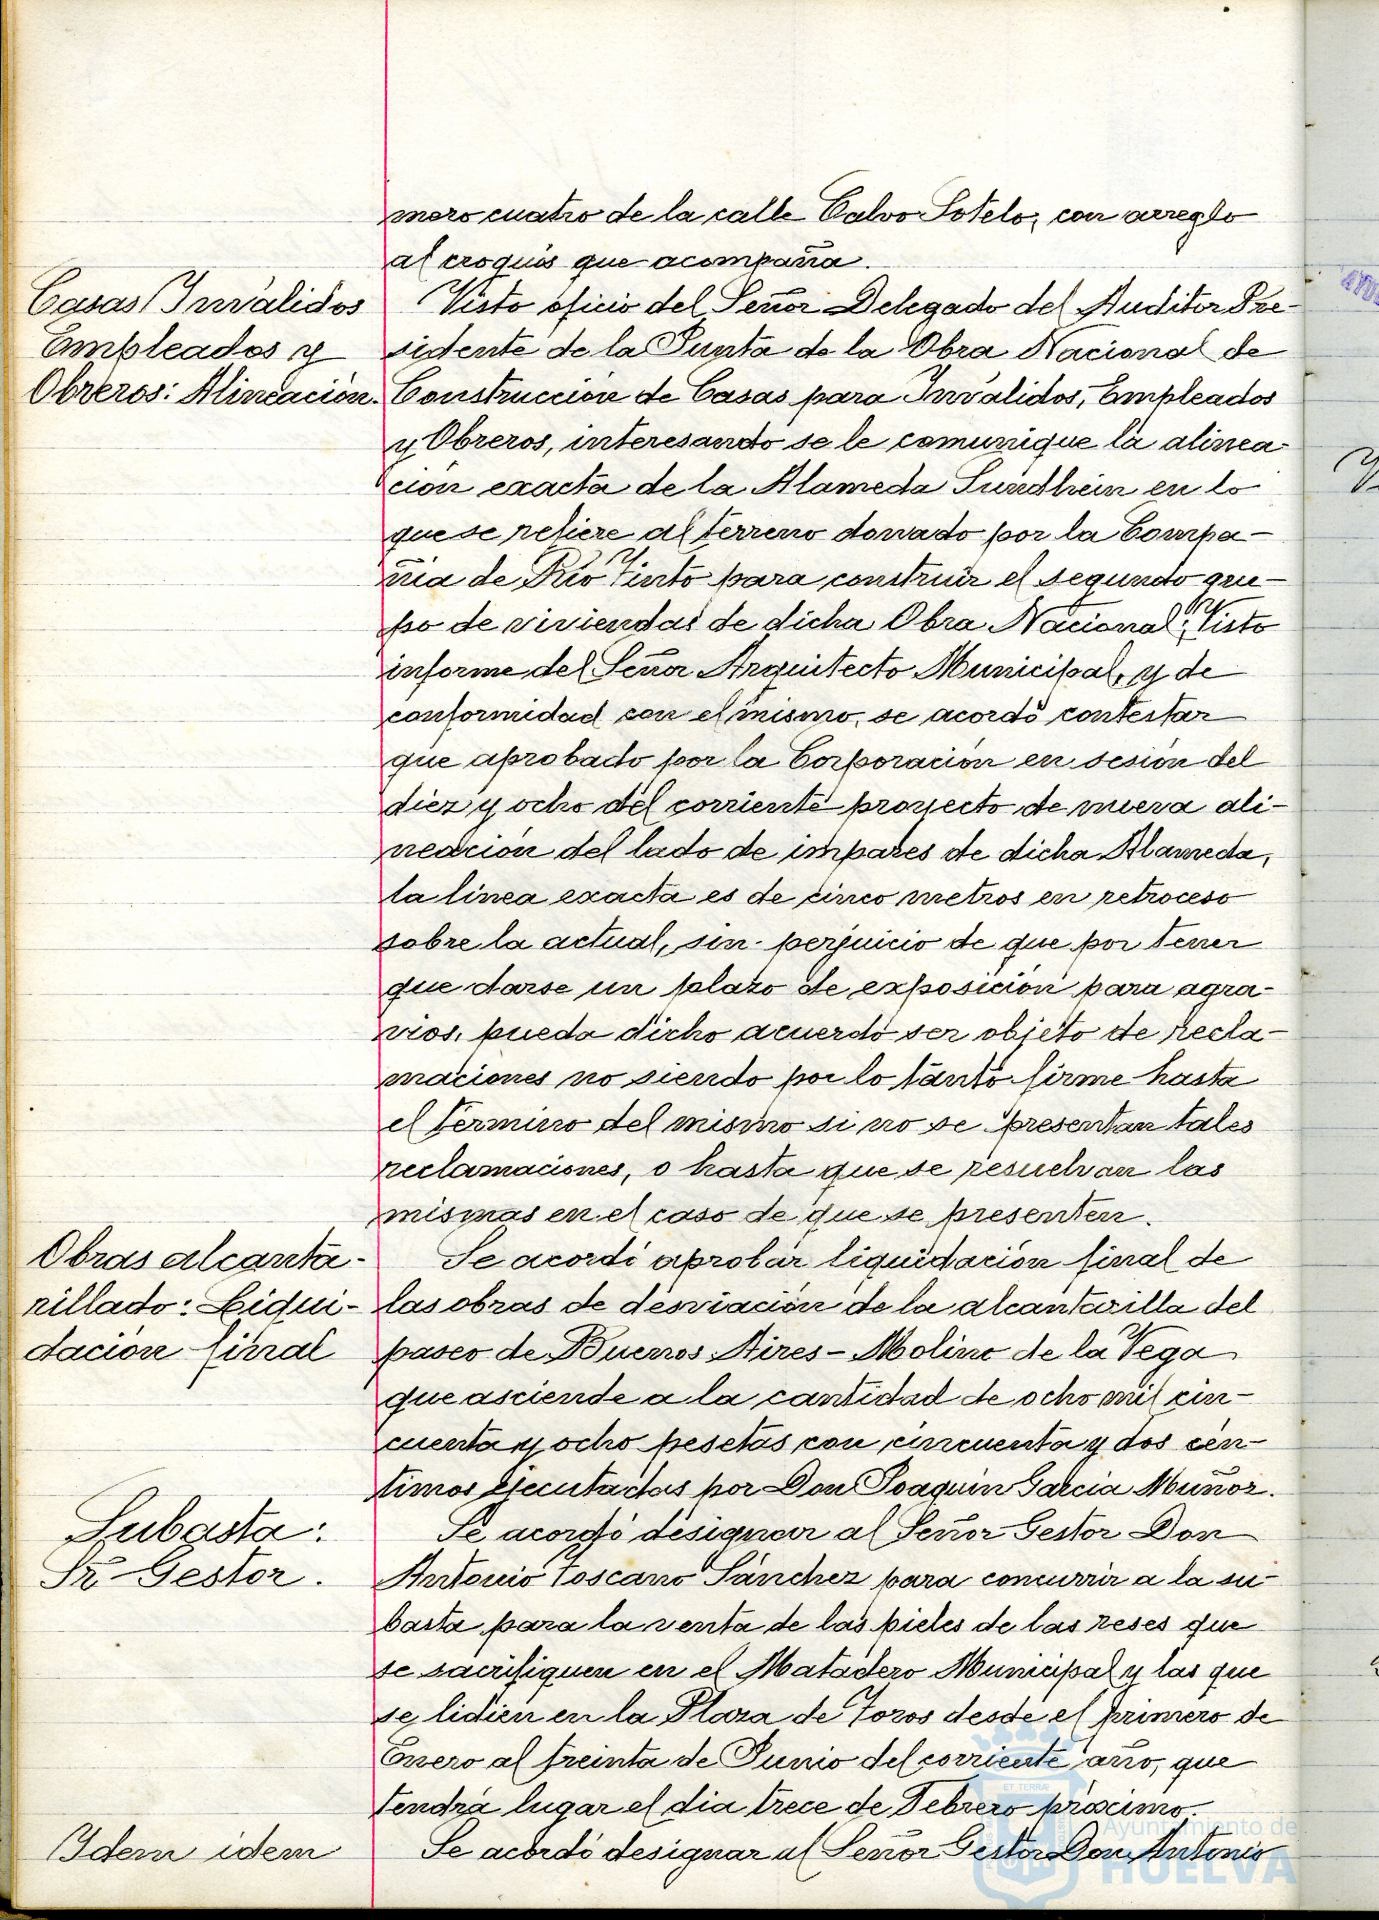 mero cuatro de la calle Calvo Sotelo, con arreglo
al croquis que acompaña.
Casas Inválidos
Empleados y
Obreros: Alineación.
Visto oficio del Señor Delegado del Auditor Pre-
sidente de la Junta de la Obra Nacional de
Construcción de Casas para Inválidos, Empleados
y Obreros, interesando se le comunique la alinea-
ción exacta de la Alameda Sundhein en lo
que se refiere al terreno donado por la Compa-
ñia de Rio Tinto para construir el segundo gru-
po de viviendas de dicha Obra Nacional; Visto
informe del Señor Arquitecto Municipal, y de
conformidad con el mismo, se acordó contestar
que aprobado por la Corporación en sesión del
diez y ocho del corriente proyecto de nueva ali-
neación del lado de impares de dicha Alameda,
la linea exacta es de cinco metros en retroceso
sobre la actual, sin perjuicio de que por tener
que darse un plazo de exposición para agra-
vios, pueda dicho acuerdo ser objeto de recla-
maciones no siendo por lo tanto firme hasta
el término del mismo si no se presentan tales
reclamaciones, o hasta que se resuelvan las
mismas en el caso de que se presenten.
Obras alcanta-
rillado: Liqui-
dación final
Se acordó aprobar liquidación final de
las obras de desviación de la alcantarilla del
paseo de Buenos Aires - Molino de la Vega
que asciende a la cantidad de ocho mil cin-
cuenta y ocho pesetas con cincuenta y dos cén-
timos ejecutadas por Don Joaquin Garcia Muñoz.
Subasta:
Sr Gestor.
Se acordó designar al Señor Gestor Don
Antonio Toscano Sánchez para concurrir a la su-
basta para la venta de las pieles de las reses que
se sacrifiquen en el Matadero Municipal y las que
se lidien en la Plaza de Toros desde el primero de
Enero al treinta de Junio del corriente año, que
tendrá lugar el dia trece de Febrero próximo.
Idem idem
Se acordó designar al Señor Gestor Don Antonio
Ayuntamiento de
HUELVA